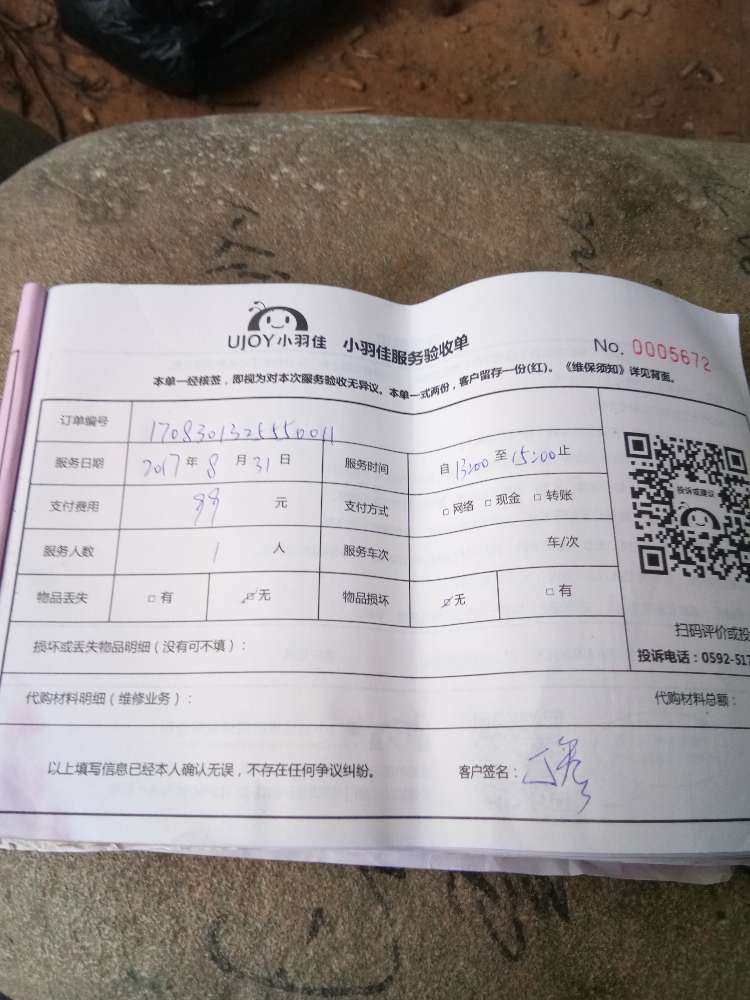 UJOY小羽佳 小羽佳服务验收单 No. 0005672
本单一经核签，即视为对本次服务验收无异议。本单一式两份，客户留存一份(红)。《维保须知》详见背面。
订单编号 17083013255550011
服务日期 2017年8月31日 服务时间 自13:00至15:00止
支付费用 99 元 支付方式 □网络 □现金 □转账
服务人数 1 人 服务车次 车/次
物品丢失 □有 ☑无 物品损坏 ☑无 □有
投诉或建议
扫码评价或投
投诉电话：0592-517
损坏或丢失物品明细（没有可不填）：
代购材料明细（维修业务）： 代购材料总额：
以上填写信息已经本人确认无误，不存在任何争议纠纷。 客户签名：